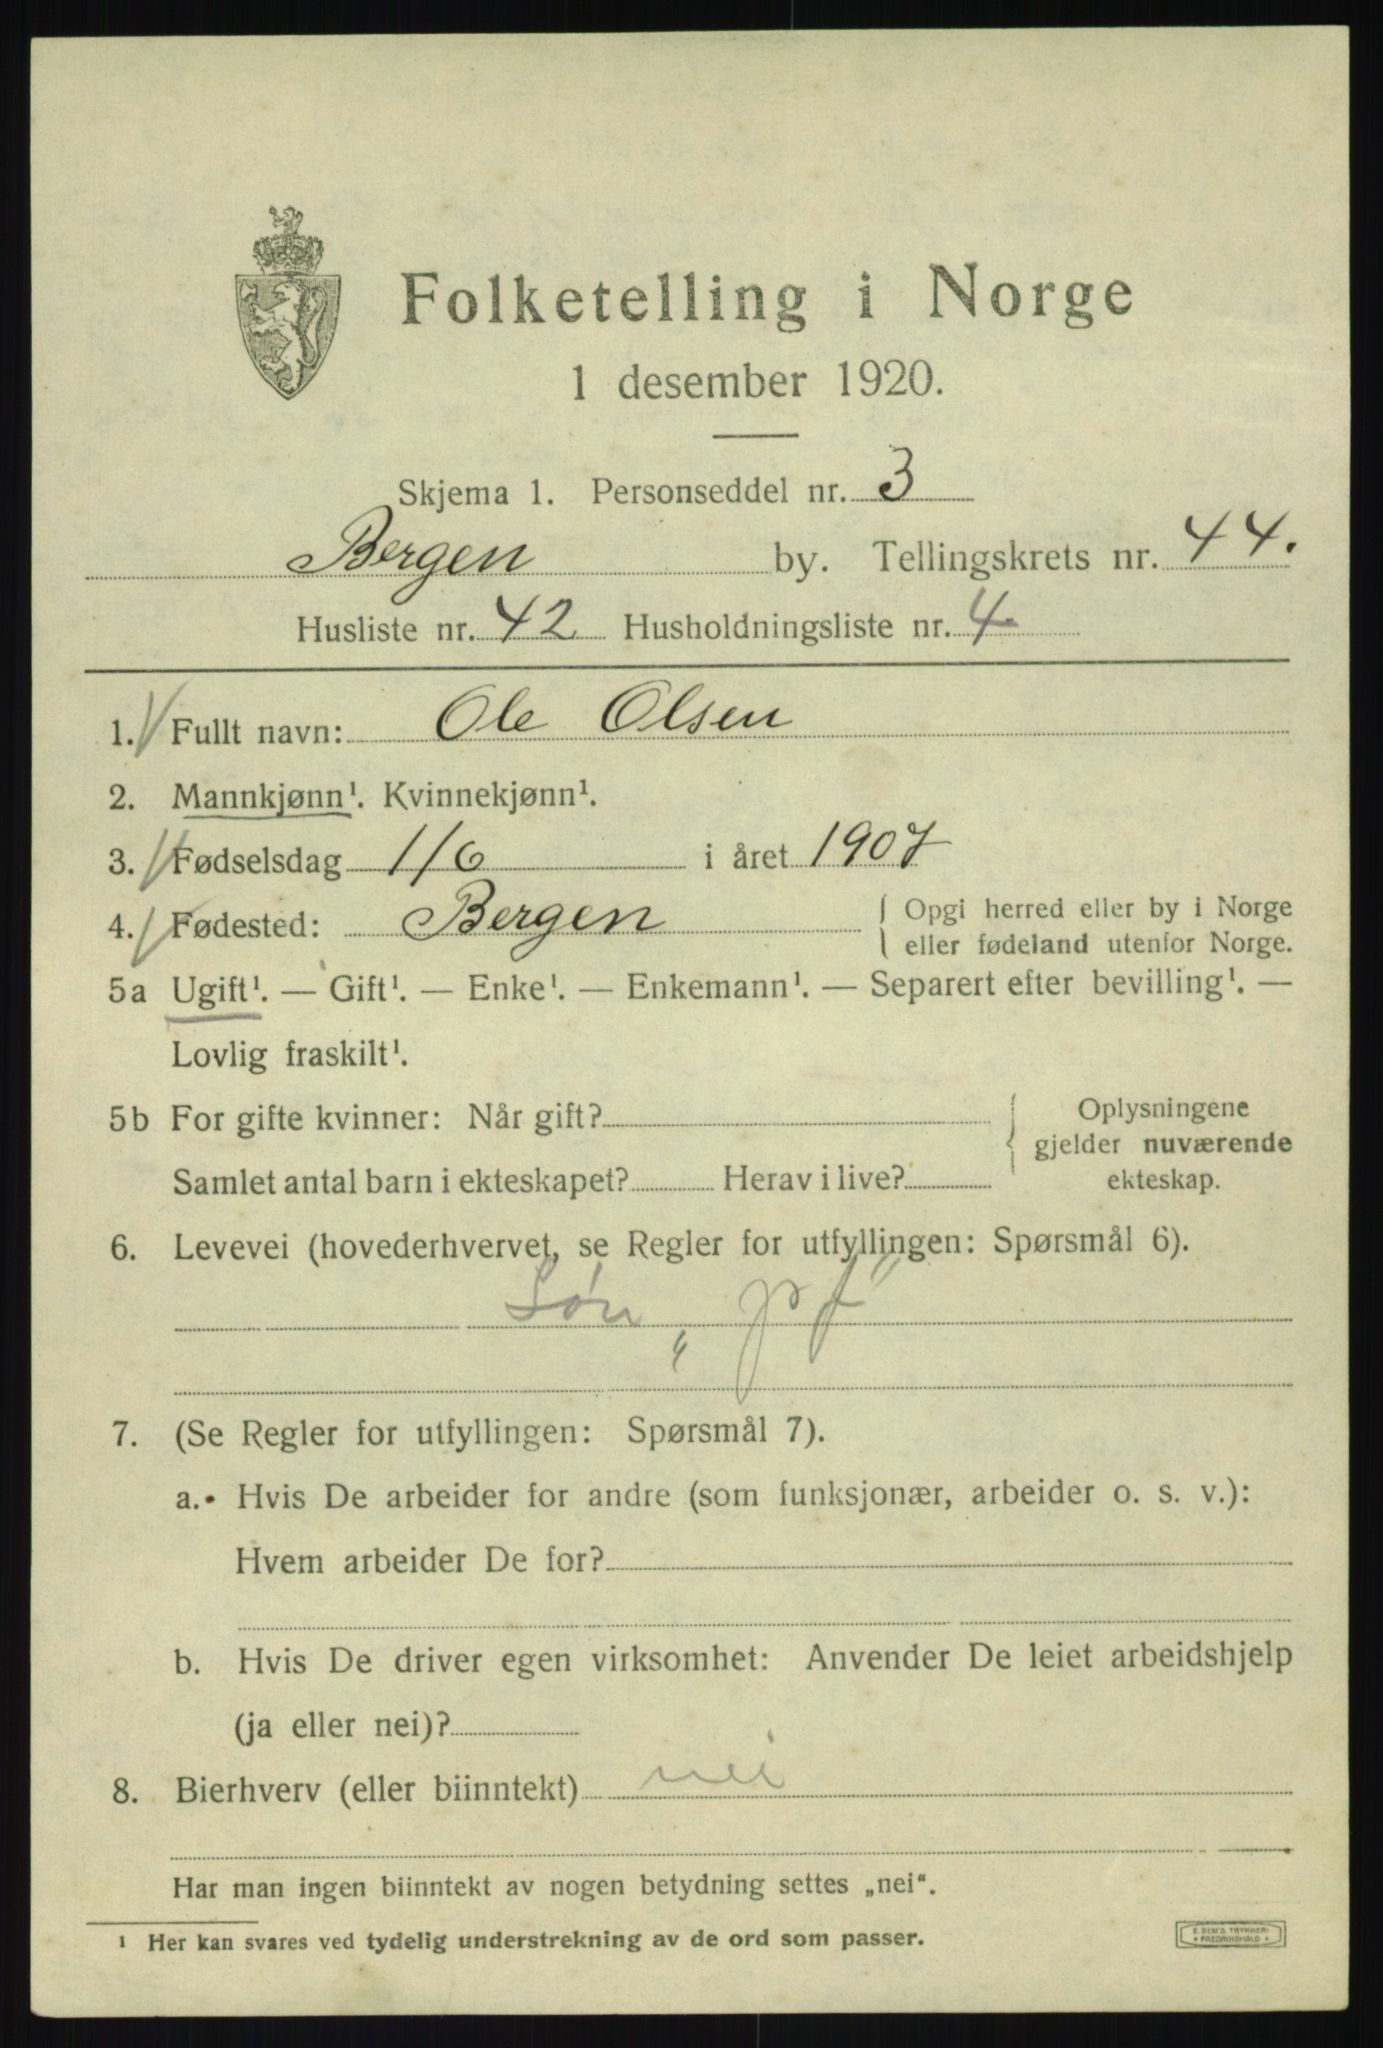 Folketelling i Norge
1 desember 1920.
Skjema 1. Personseddel nr. 3
Bergen by. Tellingskrets nr. 44.
Husliste nr. 42 Husholdningsliste nr. 4
1. Fullt navn: Ole Olsen
2. Mannkjønn¹. Kvinnekjønn¹.
3. Fødselsdag 1/6 i året 1907
4. Fødested: Bergen { Opgi herred eller by i Norge
eller fødeland utenfor Norge.
5a Ugift¹. — Gift¹. — Enke¹. — Enkemann¹. — Separert efter bevilling¹. —
Lovlig fraskilt¹.
5b For gifte kvinner: Når gift?
Samlet antal barn i ekteskapet? Herav i live?
Oplysningene
gjelder nuværende
ekteskap.
6. Levevei (hovederhvervet, se Regler for utfyllingen: Spørsmål 6).
Søn
7. (Se Regler for utfyllingen: Spørsmål 7).
a. Hvis De arbeider for andre (som funksjonær, arbeider o. s. v.):
Hvem arbeider De for?
b. Hvis De driver egen virksomhet: Anvender De leiet arbeidshjelp
(ja eller nei)?
8. Bierhverv (eller biinntekt) nei
Har man ingen biinntekt av nogen betydning settes „nei“.
¹ Her kan svares ved tydelig understrekning av de ord som passer.
E. SEM'S TRYKKERI
FREDRIKSHALD